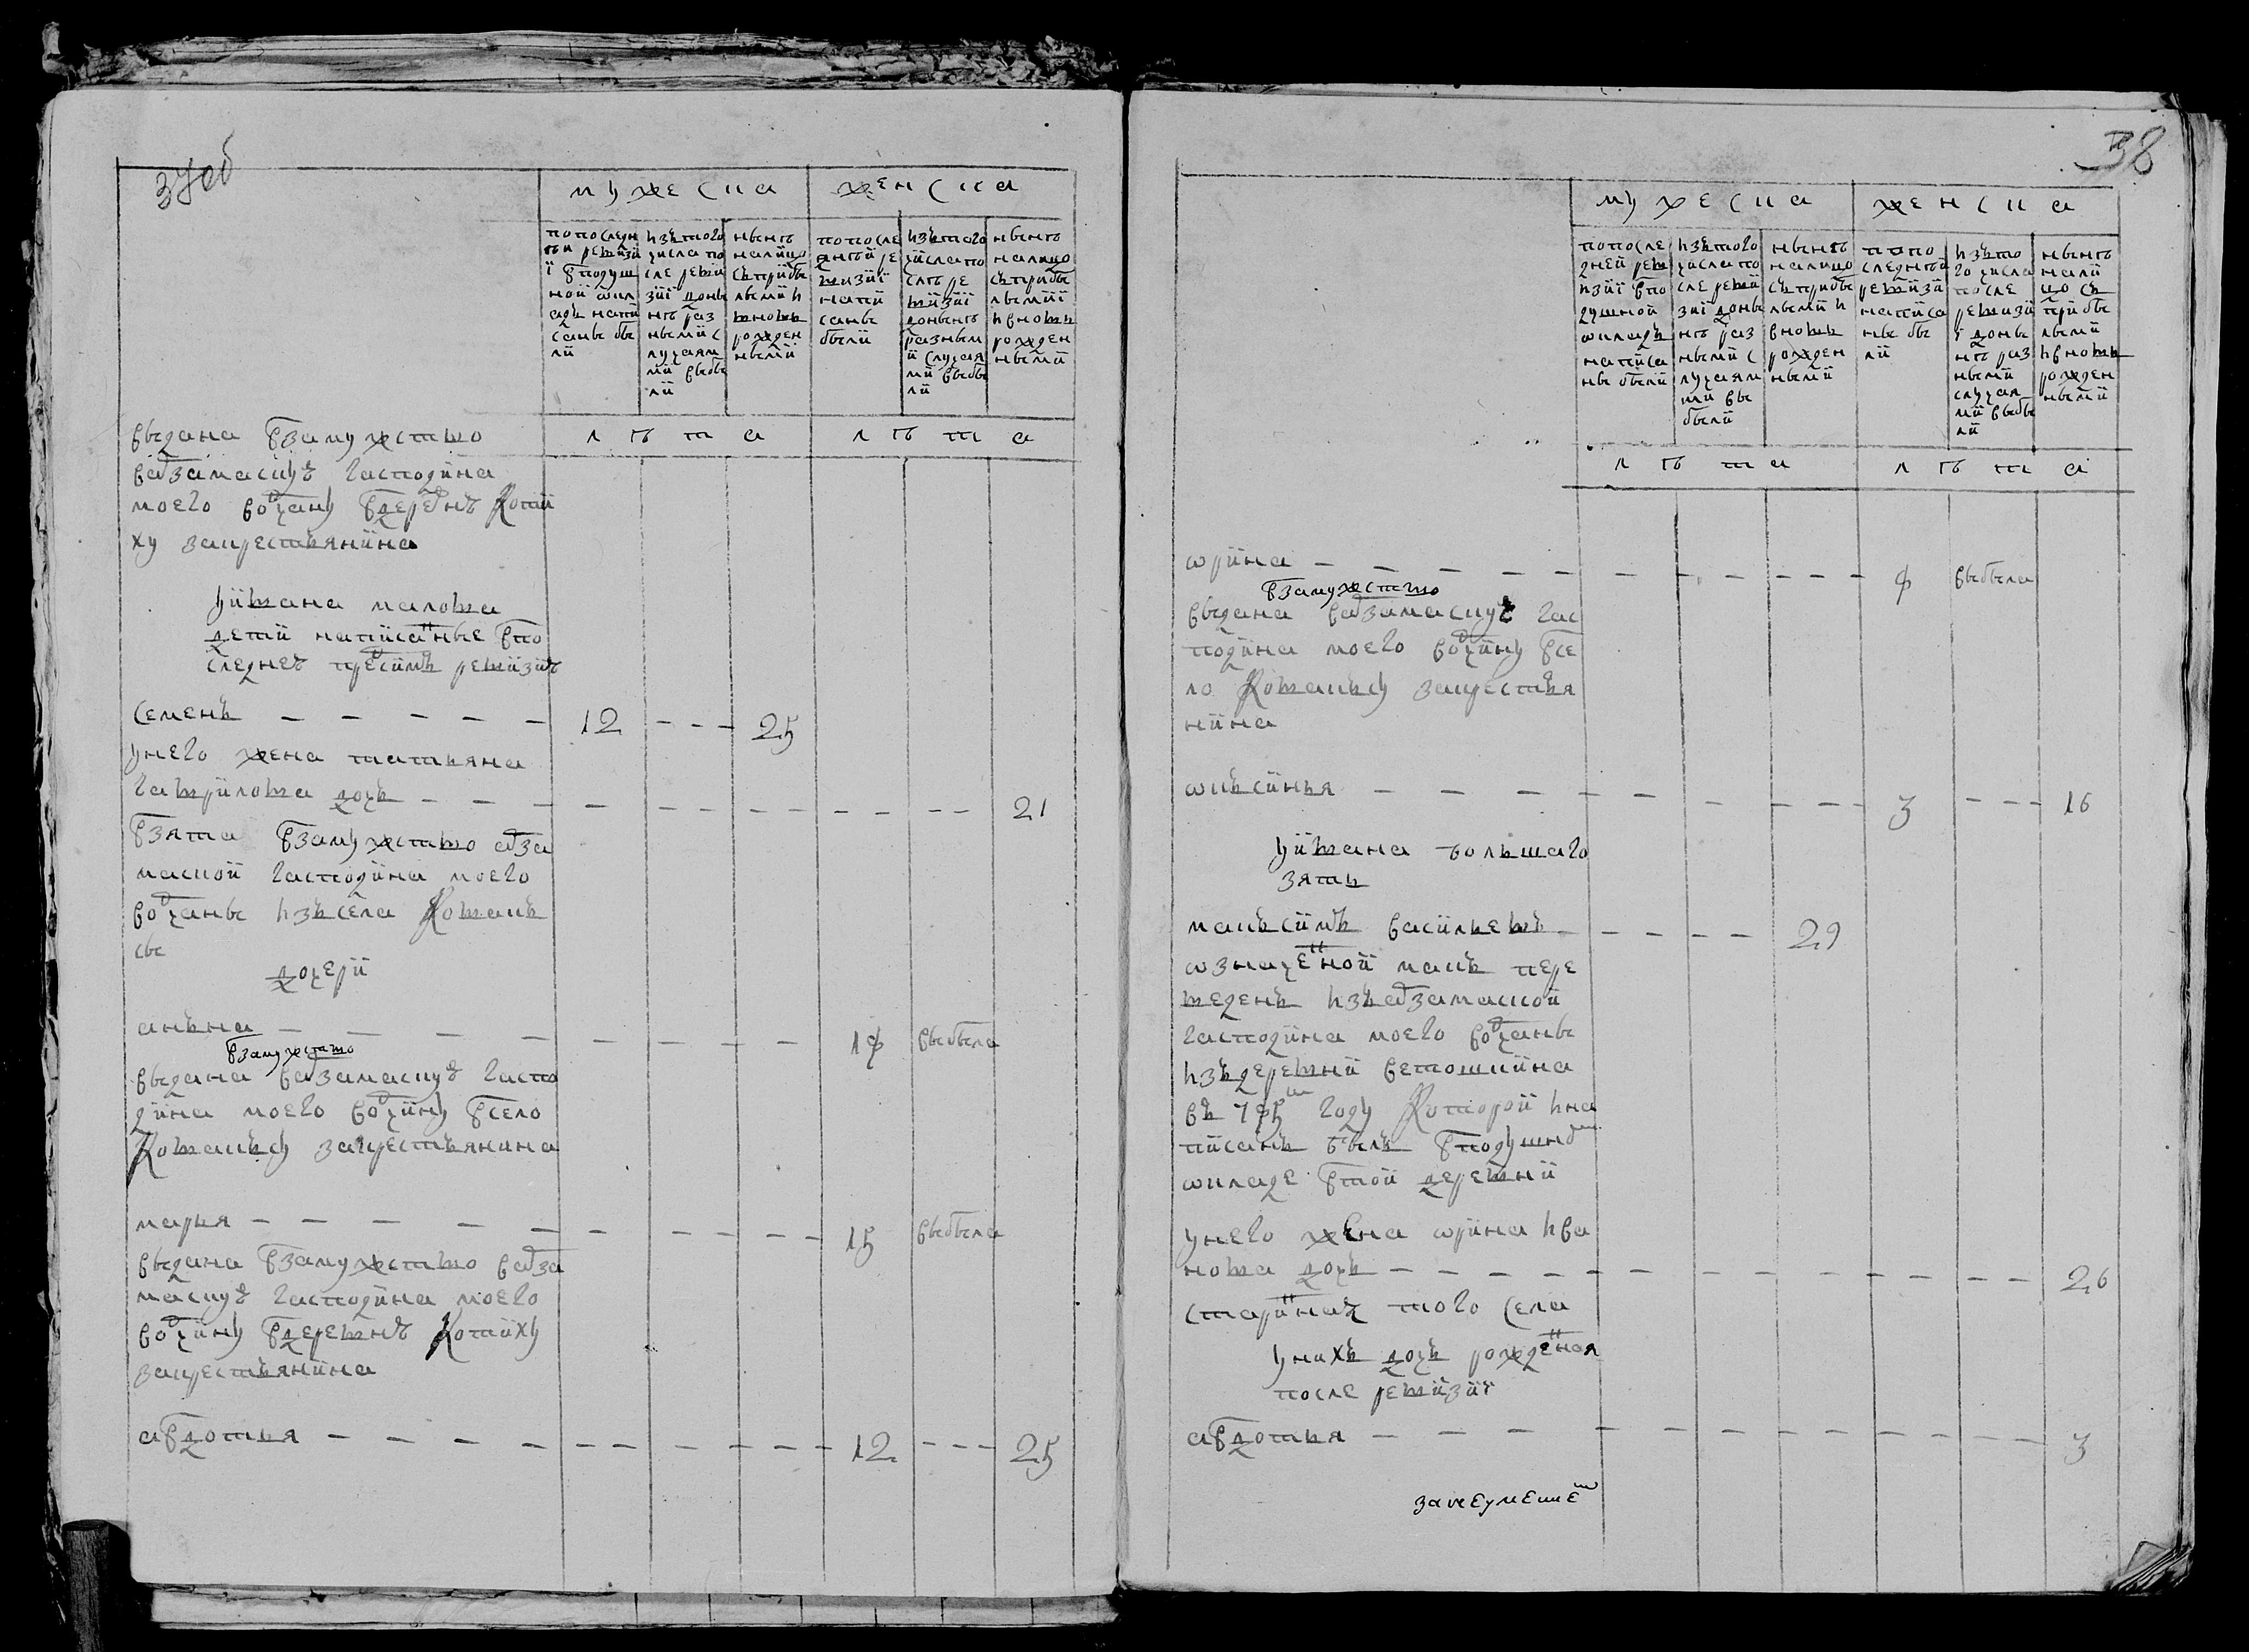 37об
мужеска женска
попоследн
ѣи ревизи
ї вподуш
ной окл
адъ напи
саны бы
ли
изътого
числа по
сле реви
зиї доны
нѣ раз
ными с
лучаям
ми выбы
ли
нынѣ
налицо
съприбы
лыми и
вновь
рожден
ными
попосле
днѣй ре
визиї
напи
саны
были
изътого
числа по
слѣ ре
визиї
донынѣ
разным
и случая
ми выбы
ли
нынѣ
налицо
съприбы
лымиї
ивновь
рожден
ными
лѣта лѣта
выдана взамужство
варзамаскую гасподина
моего вотчану вдеревнѣ Коти
ху закрестьянина
уивана малова
дети написанные впо
следнеѣ пресимъ ревизиѣ
семенъ 12 25
унего жена татьяна
гаврилова дочь 21
взята взамужство арза
маской гасподина моего
вотчаны изъсела Ковакъ
сы
дочери
анъна 14 выбыла
взамужство
выдана варзамаскую гаспо
дина моего вотчину всело
Ковакъсу закрестьянина
марья 15 выбыла
выдана взамужство варза
маскую гасподина моего
вотчину вдеревнѣ Котиху
закрестьянина
авдотья 12 25
38
мужеска женска
попосле
дней рев
изиї впо
душной
окладъ
написа
ны были
изътого
числа по
сле реви
зиї доны
нѣ раз
ными с
лучаям
ми вы
были
нынѣ
налицо
съприбы
лыми и
вновь
рожден
ными
попо
следнѣй
ревизи
написа
ны бы
ли
изъто
го числа
после
ревизи
ї доны
нѣ раз
ными
случая
ми выбы
ли
нынѣ
нали
цо съ
прибы
лыми
ивновь
рожден
ными
лѣта лѣта
орина 4 выбыла
взамужство
выдана варзамаскую гас
подина моего вотчину все
ло Ковакъсу закрестья
нина
окъсинья 3 16
уивана большаго
зять
макъсимъ васильевъ 29
означенной макъ пере
веденъ изъарзамаской
гасподина моего вотчаны
издеревни ветошкина
въ 795 году Которой ина
писанъ былъ вподушном
окладе втой деревни
унего жена орина ива
нова дочь 26
старинная того села
унихъ дочь рожденая
после ревизиї
авдотья 3